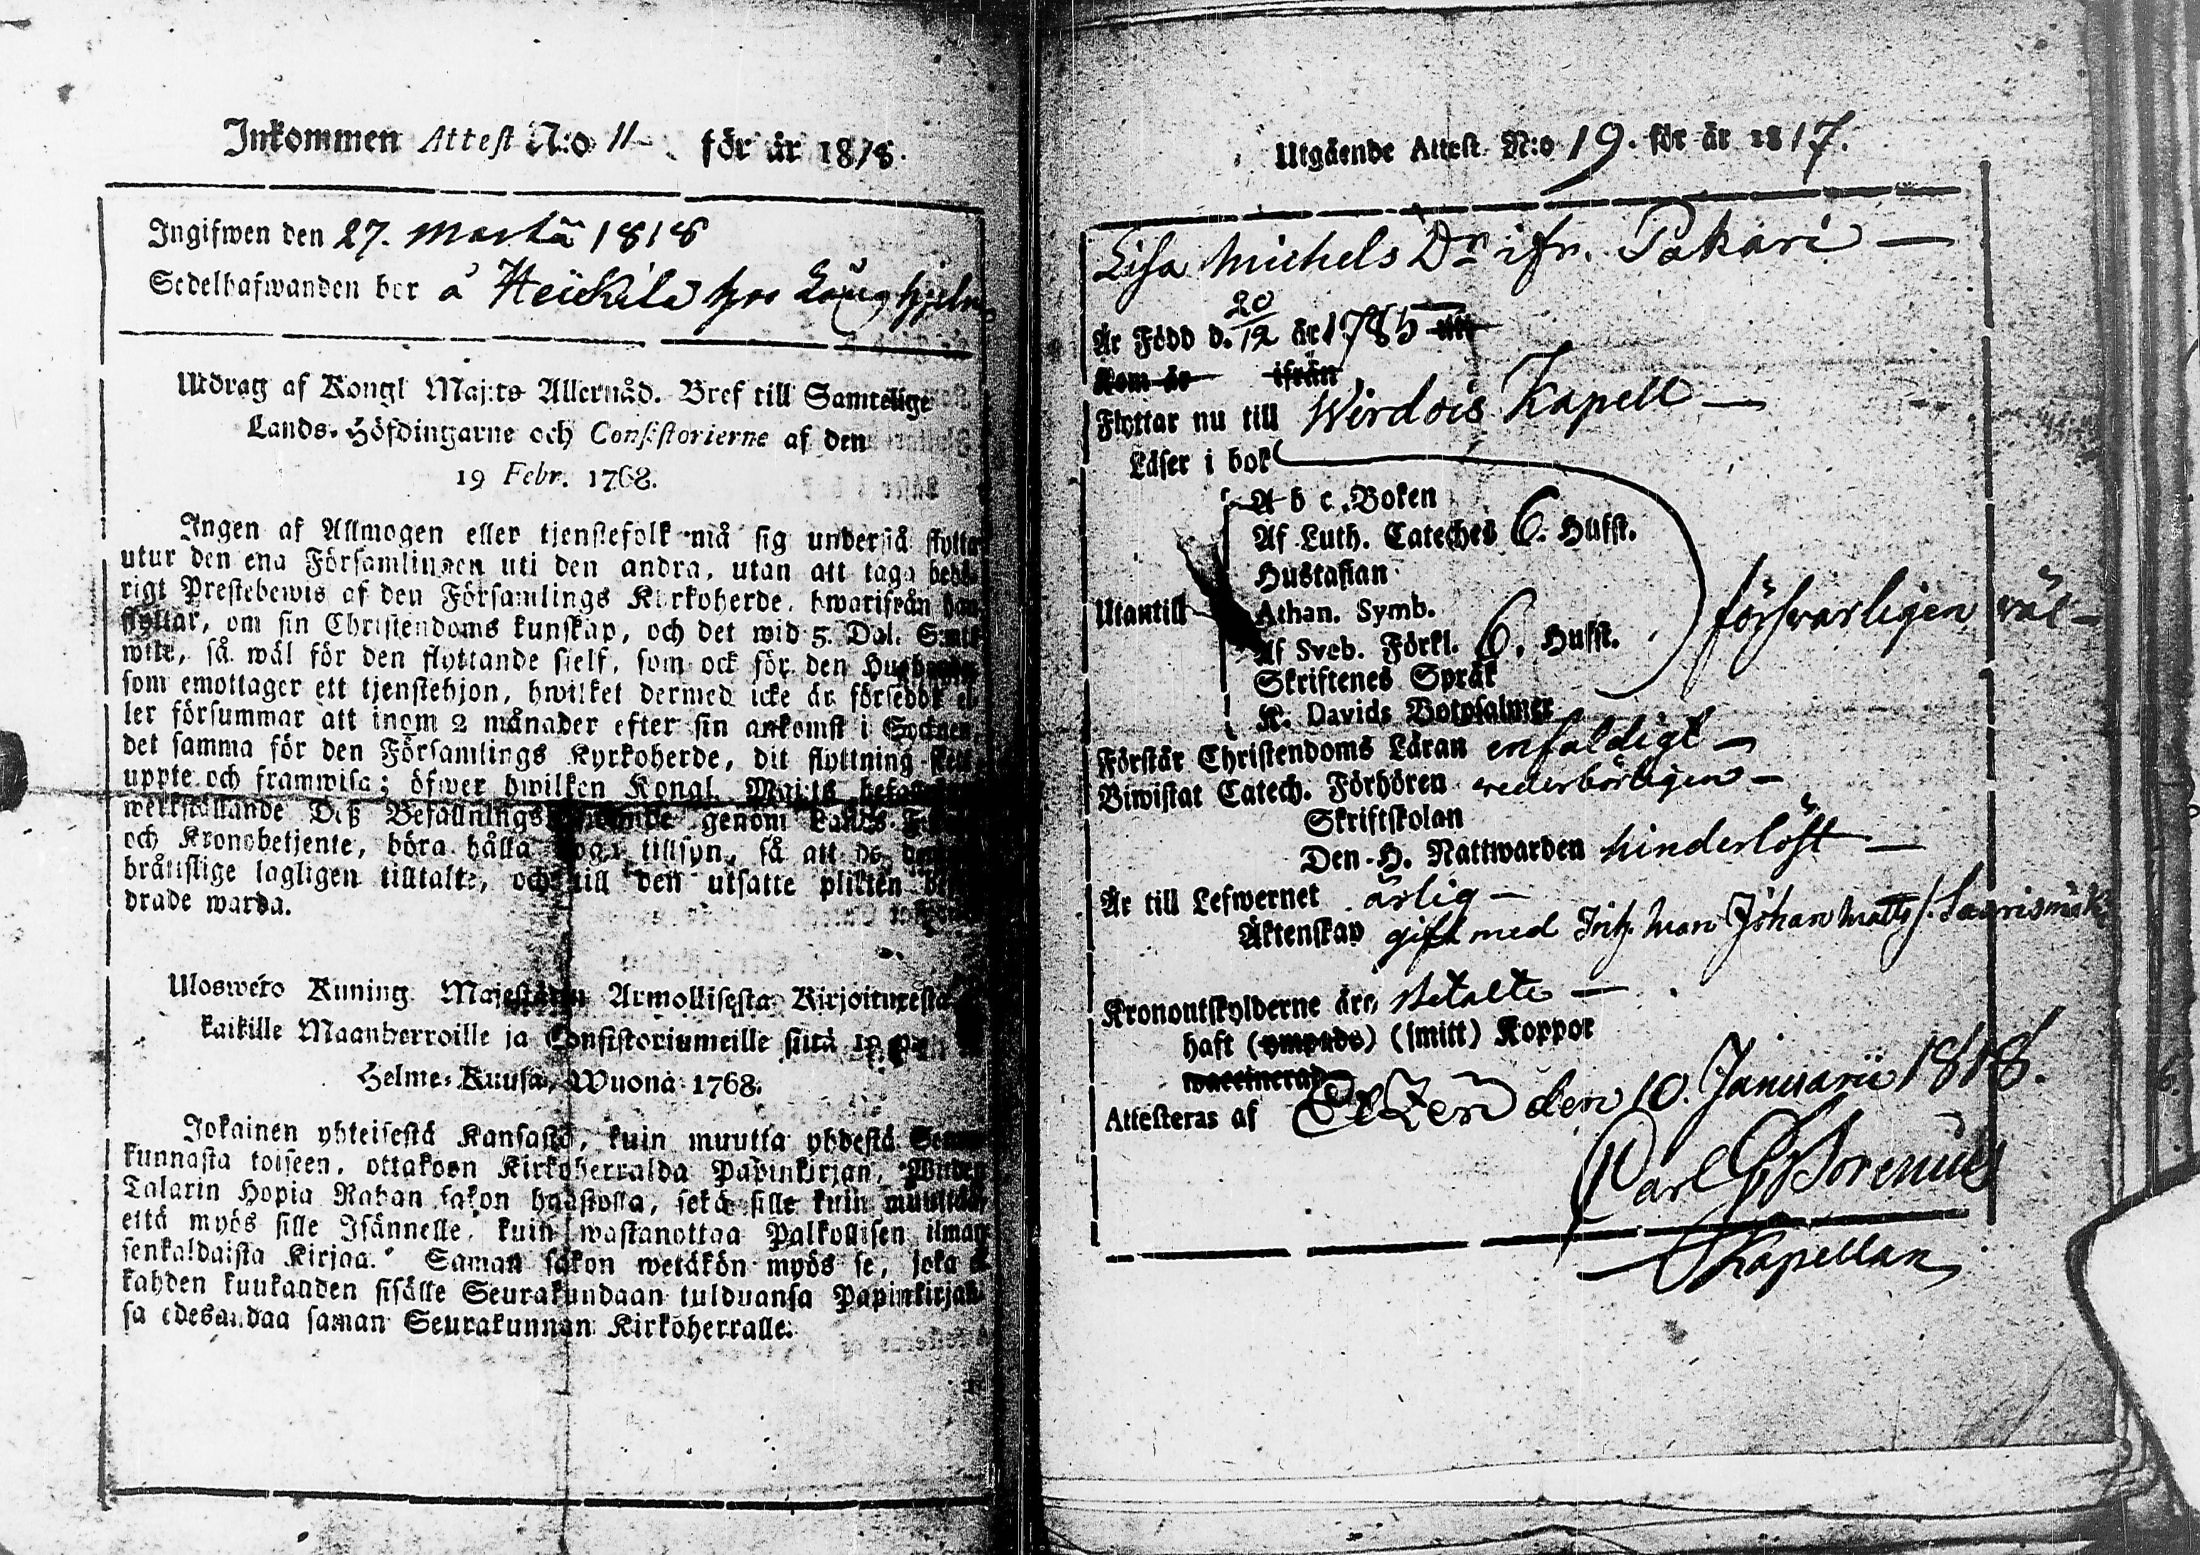 Inkommen Attest N:o 11 för år 1818.
Ingifwen den 27. Martii 1818
Sedelhafwanden bor å Heickilä hos
Utdrag af Kongl Maj:ts Allernåd. Bref till Samtelige
Lands-Höfdingarne och Consistorierne af den
19 Febr. 1768.
Ingen af Allmogen eller tjenstefolk må sig understå flytta
utur den ena Församlingen uti den andra, utan att taga behö-
rigt Prestebewis af den Församlings Kyrkoherde, hwarifrån han
flyttar, om sin Christendoms kunskap, och det wid 5. Dal. Smts
wite, så wäl för den flyttande sjelf, som ock för den Husbonde
som emottager ett tjenstehjon, hwilket dermed icke är försedt el-
ler försummar att inom 2 månader efter sin ankomst i Socknen
det samma för den Församlings Kyrkoherde, dit flyttning sker
uppte och framwisa; öfwer hwilken Kongl. Maj:ts befallning
werkställande Dess Befallnings genom Lands-
och Kronobetjente, böra hålla noga tillsyn, så att de
bråttslige lagligen tilltalte, och till den utsatte plikten be-
drade warda.
Uloswéto Kuning. Majestätin Armollisesta Kirjoituxesta
kaikille Maanherroille ja Consistoriumeille siitä 19 p:
Helme-Kuusa, Wuonä 1768.
Jokainen yhteisestä Kansasta, kuin muutta yhdestä Seura-
kunnasta toiseen, ottakoon Kirkoherralda Papinkirjan, Wiiden
Talarin Hopia Rahan sakon haastolla, sekä sille kuin muuttaa,
että myös sille Isännelle, kuin wastanottaa Palkollisen ilman
senkaldaista Kirjaa. Saman sakon wetäkön myös se, joka ei
kahden kuukauden sisälle Seurakundaan tulduansa Papinkirjan-
sa edesandaa saman Seurakunnan Kirkoherralle.
Utgående Attest N:o 19. för år 1817.
Lisa Michels Dr ifr. Pakari
Är Född d. 20/12 år 1785
Kom år ifrån
Flyttar nu till Wirdois Kapell
Läser i bok
A b c. Boken
Af Luth. Cateches 6. Hufst.
Hustaflan
Utantill Athan. Symb. försvarligen väl
Af Sveb. Förkl. 6. Hufst.
Skriftenes Språk
K. Davids Botpsalmer
Förstår Christendoms Läran enfaldigt
Biwistat Catech. Förhören vederbörligen
Skriftskolan
Den H. Nattwarden hinderlöst
Är till Lefwernet ärlig
Äktenskap gift med Johan Matts
Kronoutskylderne äro betalte
haft (ympade) (smitt) Koppor
waccinerad
Attesteras af den 10. Januarii 1818.
Carl G Borenius
Kapellan